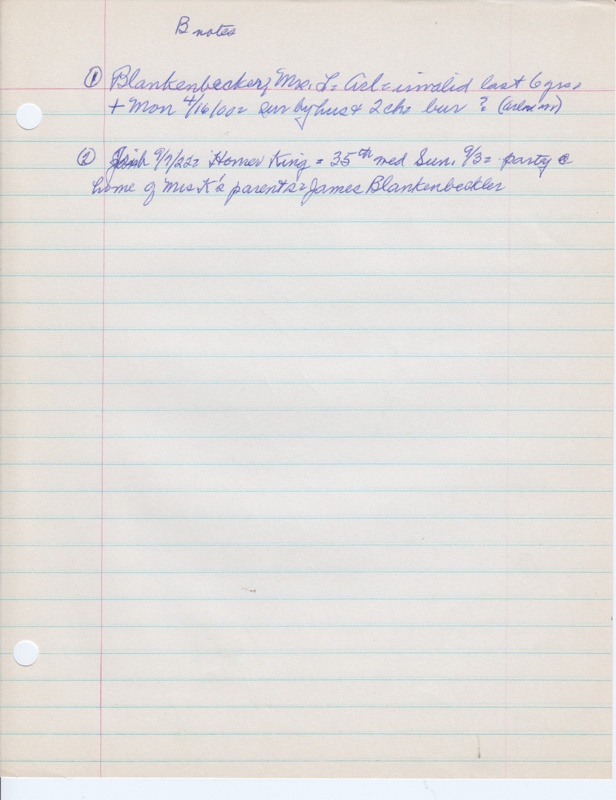 B notes
① Blankenbecker, Mrs. L= Ad= invalid last 6 yrs=
+ Mon 4/16/00= sur by hus & 2 ch= bur ?
② 9/7/22= Homer King = 35th wed Sun. 9/3= party @
home of Mrs K's parents= James Blankenbeckler